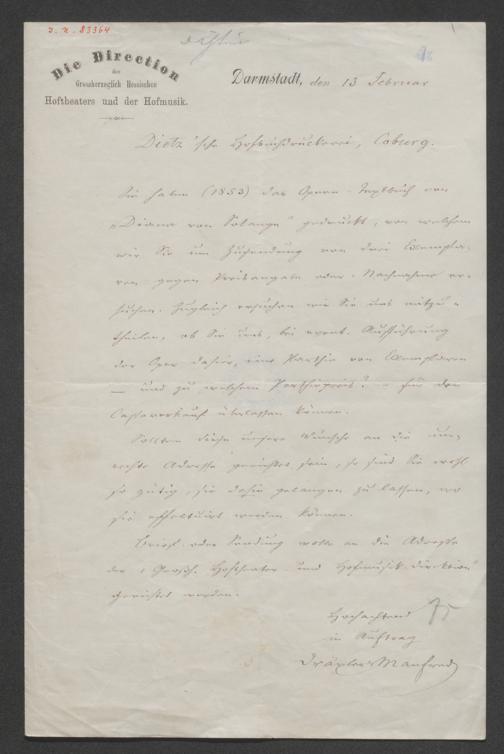 J. N. 83364
Die Direction
der
Grossherzoglich Hessischen
Hoftheaters und der Hofmusik.
Darmstadt, den 13 Februar
Dietz'sche Hofbuchdruckerei, Coburg.
Sie haben (1853) das Opern-Textbuch von
"Diana von Solange" gedruckt, von welchem
wir Sie um Zusendung von drei Exempla-
ren gegen Preisangabe oder Nachnahme er-
suchen. Zugleich ersuchen wir Sie uns mitzu-
theilen, ob Sie uns, bei event. Aufführung
der Oper dahier, eine Parthie von Exemplaren
— und zu welchem Parthiepreis? – für den
Cassaverkauf überlassen können.
Sollten diese unsere Wünsche an die un-
rechte Adresse gerichtet sein, so sind Sie wohl
so gütig, sie dahin gelangen zu lassen, wo
sie effectuirt werden können.
Brief oder Sendung wolle an die Adresse
der "Hoftheater und Hofmusik Direktion"
gerichtet werden.
Hochachtend
im Auftrag
Dräxler-Manfred